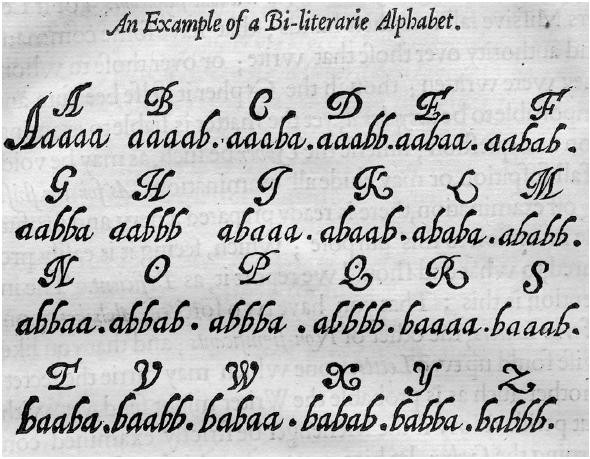 An Example of a Bi-literarie Alphabet.
A B C D E F
Aaaaa aaaab. aaaba. aaabb. aabaa. aabab.
G H I K L M
aabba aabbb abaaa. abaab. ababa. ababb.
N O P Q R S
abbaa. abbab. abbba. abbbb. baaaa. baaab.
T V W X Y Z
baaba. baabb. babaa. babab. babba. babbb.